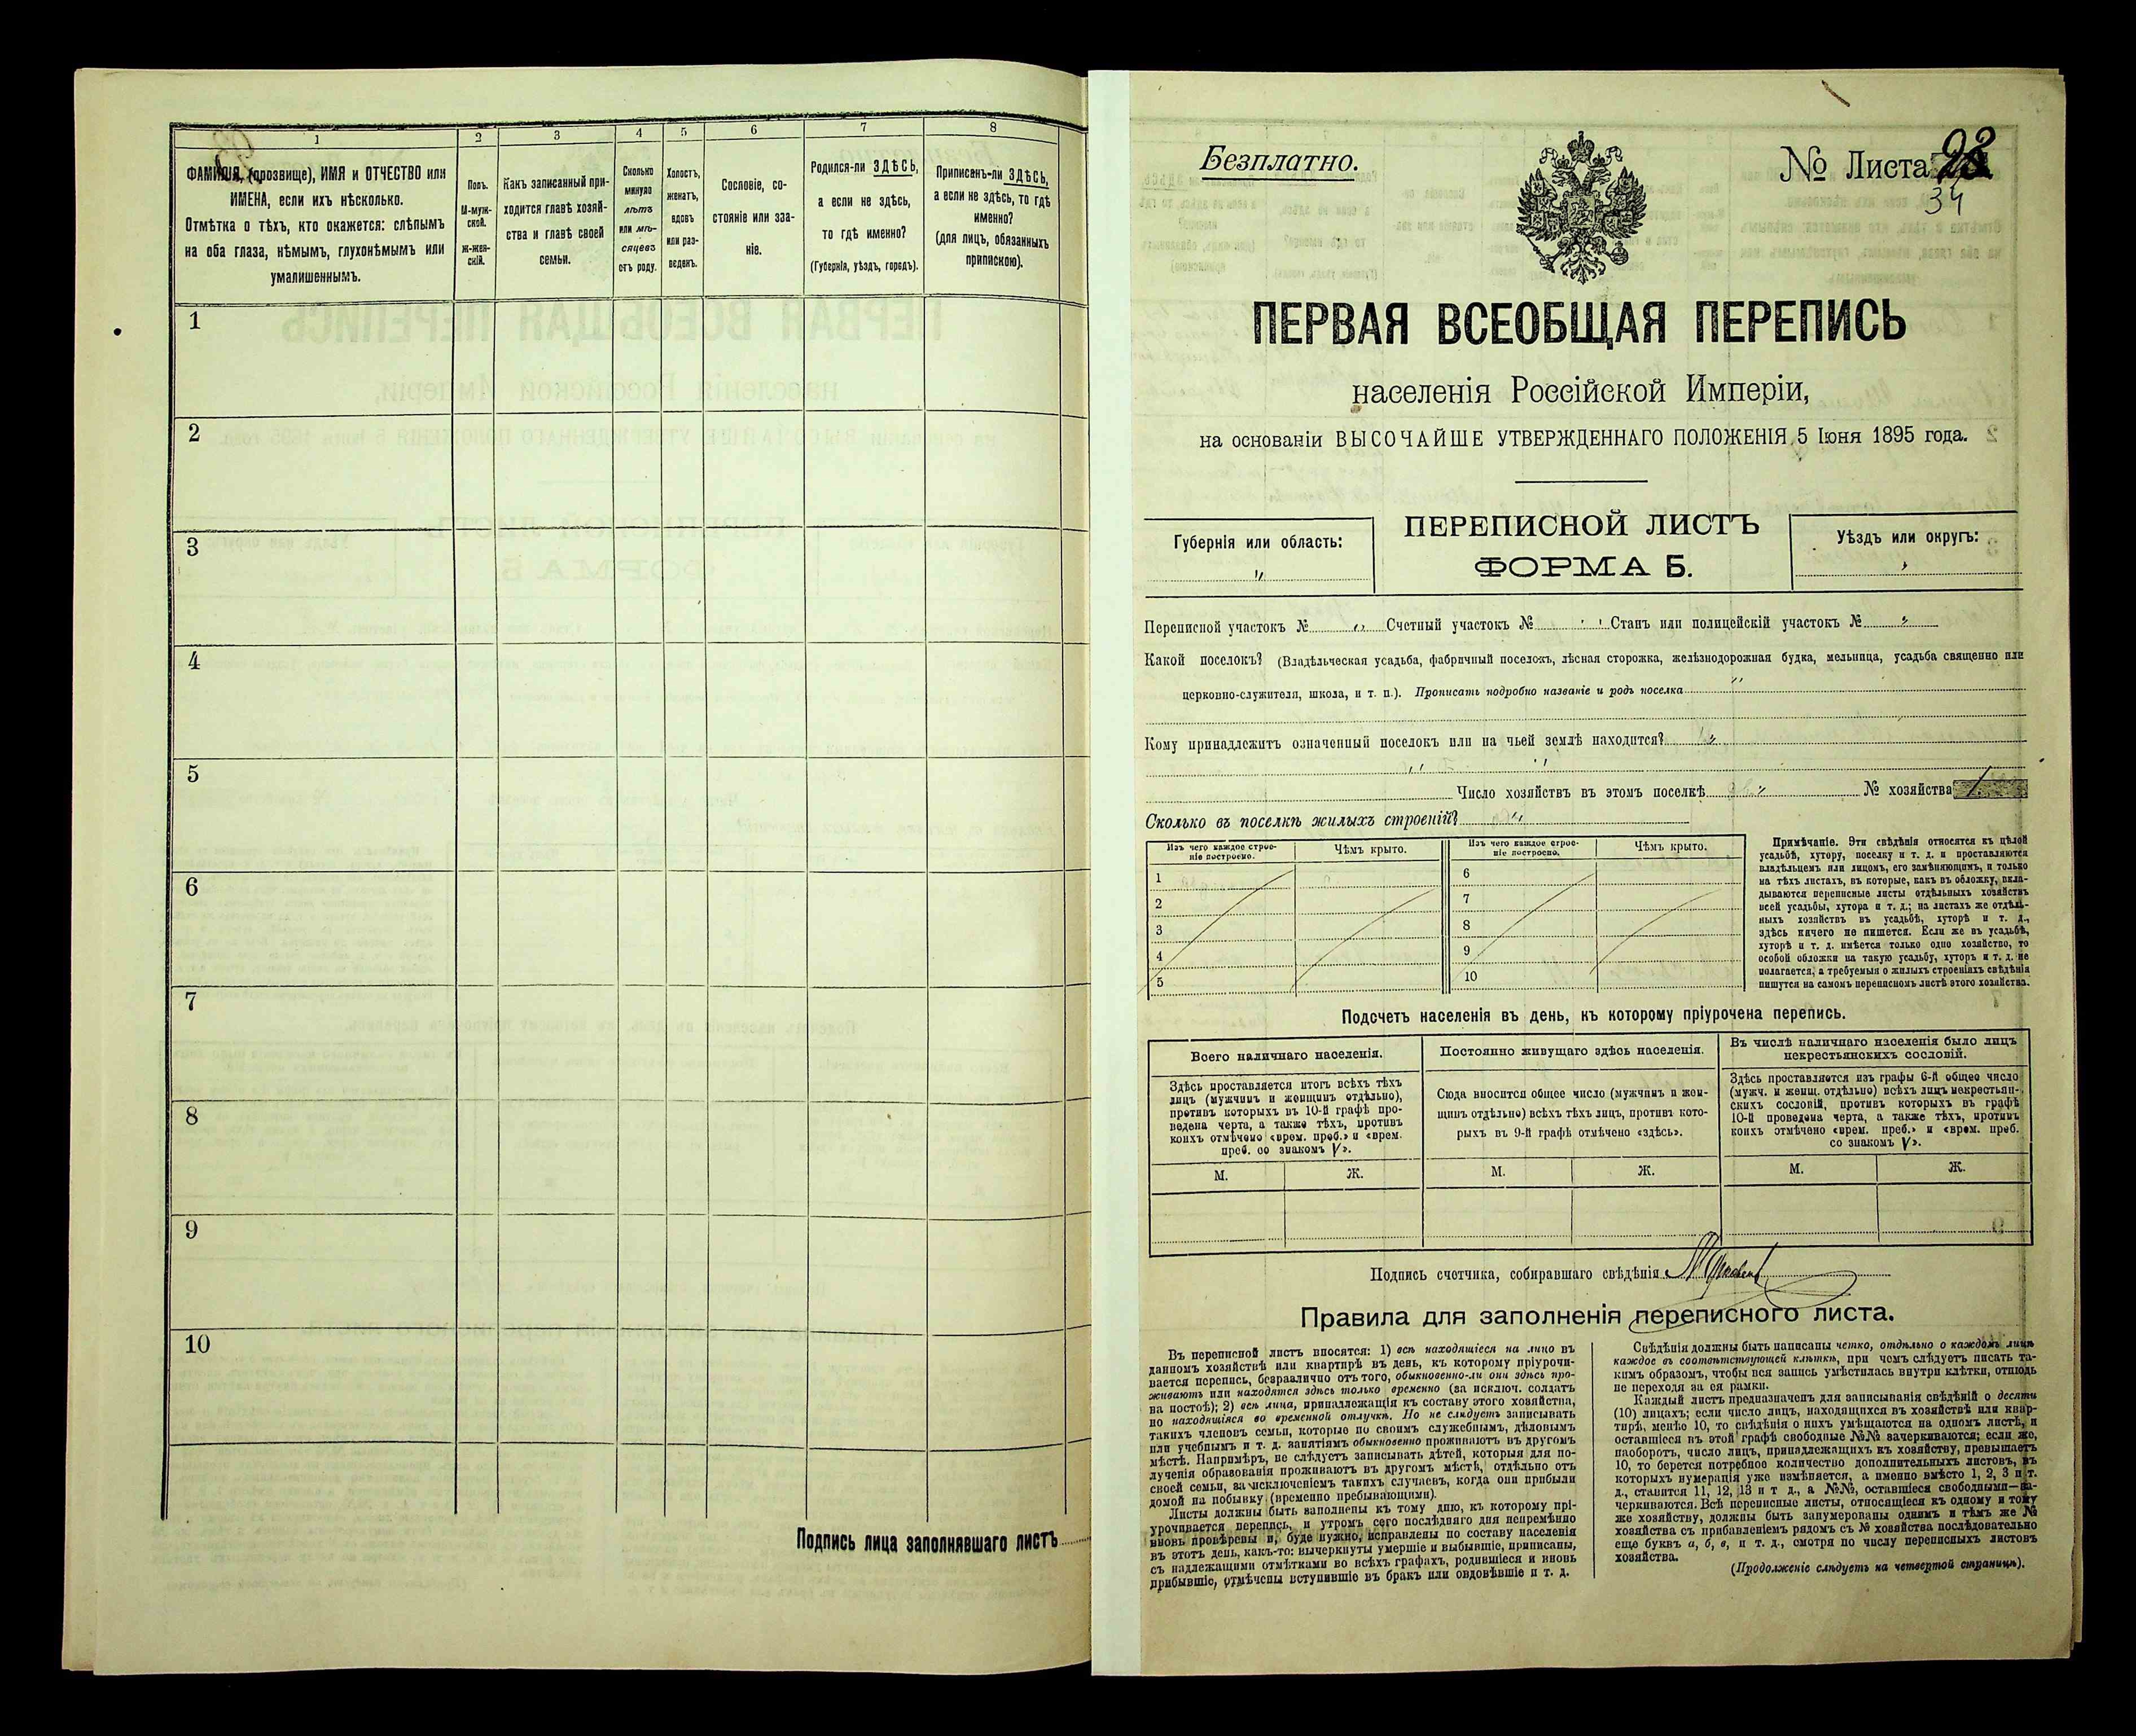 1
2
3
4
5
6
7
8
ФАМИЛІЯ, (прозвище), ИМЯ и ОТЧЕСТВО или
ИМЕНА, если ихъ нѣсколько.
Отмѣтка о тѣхъ, кто окажется: слѣпымъ
на оба глаза, нѣмымъ, глухонѣмымъ или
умалишеннымъ.
Полъ.
М-муж-
ской.
Ж-жен-
скій.
Какъ записанный при-
ходится главѣ хозяй-
ства и главѣ своей
семьи.
Сколько
минуло
лѣтъ
или мѣ-
сяцевъ
отъ роду.
Холостъ,
женатъ,
вдовъ
или раз-
веденъ.
Сословіе, со-
стояніе или зва-
ніе.
Родился-ли ЗДѢСЬ,
а если не здѣсь,
то гдѣ именно?
(Губернія, уѣздъ, городъ).
Приписенъ-ли ЗДѢСЬ,
а если не здѣсь, то гдѣ
именно?
(для лицъ, обязанныхъ
припискою).
1
2
3
4
5
6
7
8
9
10
Подпись лица заполнявшаго листъ
Безплатно.
№ Листа
34
ПЕРВАЯ ВСЕОБЩАЯ ПЕРЕПИСЬ
населенія Россійской Имперіи,
на основаніи ВЫСОЧАЙШЕ УТВЕРЖДЕННАГО ПОЛОЖЕНІЯ 5 Іюня 1895 года.
Губернія или область:
ПЕРЕПИСНОЙ ЛИСТЪ
ФОРМА Б.
Уѣздъ или округъ:
Переписной участокъ № „ Счетный участокъ № „ Станъ или полицейскій участокъ № „
Какой поселокъ? (Владѣльческая усадьба, фабричный поселокъ, лѣсная сторожка, желѣзнодорожная будка, мельница, усадьба священно или
церковно-служителя, школа, и т. п.). Прописать подробно названіе и родъ поселка „
Кому принадлежитъ означенный поселокъ или на чьей землѣ находится? „
Число хозяйствъ въ этомъ поселкѣ „ № хозяйства 1.
Сколько въ поселкѣ жилыхъ строеній? „
Изъ чего каждое строе-
ніе построено.
Чѣмъ крыто.
Изъ чего каждое строе-
ніе построено.
Чѣмъ крыто.
1
2
3
4
5
6
7
8
9
10
Примѣчаніе. Эти свѣдѣнія относятся къ цѣлой
усадьбѣ, хутору, поселку и т. д. и проставляются
владѣльцемъ или лицомъ, его замѣняющимъ, и только
на тѣхъ листахъ, въ которые, какъ въ обложку, вкла-
дываются переписные листы отдѣльныхъ хозяйствъ
всей усадьбы, хутора и т. д.; на листахъ же отдѣль-
ныхъ хозяйствъ въ усадьбѣ, хуторѣ и т. д.,
здѣсь ничего не пишется. Если же въ усадьбѣ,
хуторѣ и т. д. имѣется только одно хозяйство, то
особой обложки на такую усадьбу, хуторъ и т. д. не
полагается, а требуемыя о жилыхъ строеніяхъ свѣдѣнія
пишутся на самомъ переписномъ листѣ этого хозяйства.
Подсчетъ населенія въ день, къ которому пріурочена перепись.
Всего наличнаго населенія.
Здѣсь проставляется итогъ всѣхъ тѣхъ
лицъ (мужчинъ и женщинъ отдѣльно),
противъ которыхъ въ 10-й графѣ про-
ведена черта, а также тѣхъ, противъ
коихъ отмѣчено «врем. преб.» и «врем.
преб. со знакомъ V».
Постоянно живущаго здѣсь населенія.
Сюда вносится общее число (мужчинъ и жен-
щинъ отдѣльно) всѣхъ тѣхъ лицъ, противъ кото-
рыхъ въ 9-й графѣ отмѣчено «здѣсь».
Въ числѣ наличнаго населенія было лицъ
некрестьянскихъ сословій.
Здѣсь проставляется изъ графы 6-й общее число
(мужч. и женщ. отдѣльно) всѣхъ лицъ некрестьян-
скихъ сословій, противъ которыхъ въ графѣ
10-й проведена черта, а также тѣхъ, противъ
коихъ отмѣчено «врем. преб.» и «врем. преб.
со знакомъ V».
М. Ж. М. Ж. М. Ж.
Подпись счетчика, собиравшаго свѣдѣнія
Правила для заполненія переписного листа.
Въ переписной листъ вносятся: 1) всѣ находящіеся на лицо въ
данномъ хозяйствѣ или квартирѣ въ день, къ которому пріурочи-
вается перепись, безразлично отъ того, обыкновенно-ли они здѣсь про-
живаютъ или находятся здѣсь только временно (за исключ. солдатъ
на постоѣ); 2) всѣ лица, принадлежащія къ составу этого хозяйства,
но находящіяся во временной отлучкѣ. Но не слѣдуетъ записывать
такихъ членовъ семьи, которые по своимъ служебнымъ, дѣловымъ
или учебнымъ и т. д. занятіямъ обыкновенно проживаютъ въ другомъ
мѣстѣ. Напримѣръ, не слѣдуетъ записывать дѣтей, которыя для по-
лученія образованія проживаютъ въ другомъ мѣстѣ, отдѣльно отъ
своей семьи, за исключеніемъ такихъ случаевъ, когда они прибыли
домой на побывку (временно пребывающими).
Листы должны быть заполнены къ тому дню, къ которому прі-
урочивается перепись, и утромъ сего послѣдняго дня непремѣнно
вновь провѣрены и, буде нужно, исправлены по составу населенія
въ этотъ день, какъ-то: вычеркнуты умершіе и выбывшіе, приписаны,
съ надлежащими отмѣтками во всѣхъ графахъ, родившіеся и вновь
прибывшіе, отмѣчены вступившіе въ бракъ или овдовѣвшіе и т. д.
Свѣдѣнія должны быть написаны четко, отдѣльно о каждомъ лицѣ
каждое въ соотвѣтствующей клѣткѣ, при чемъ слѣдуетъ писать та-
кимъ образомъ, чтобы вся запись умѣстилась внутри клѣтки, отнюдь
не переходя за ея рамки.
Каждый листъ предназначенъ для записыванія свѣдѣній о десяти
(10) лицахъ; если число лицъ, находящихся въ хозяйствѣ или квар-
тирѣ, менѣе 10, то свѣдѣнія о нихъ умѣщаются на одномъ листѣ, и
оставшіеся въ этой графѣ свободные №№ зачеркиваются; если же,
наоборотъ, число лицъ, принадлежащихъ къ хозяйству, превышаетъ
10, то берется потребное количество дополнительныхъ листовъ, въ
которыхъ нумерація уже измѣняется, а именно вмѣсто 1, 2, 3 и т.
д., ставится 11, 12, 13 и т. д., а №№, оставшіеся свободными—за-
черкиваются. Всѣ переписные листы, относящіеся къ одному и тому
же хозяйству, должны быть занумерованы однимъ и тѣмъ же №
хозяйства съ прибавленіемъ рядомъ съ № хозяйства послѣдовательно
еще буквъ а, б, в, и т. д., смотря по числу переписныхъ листовъ
хозяйства.
(Продолженіе слѣдуетъ на четвертой страницѣ).